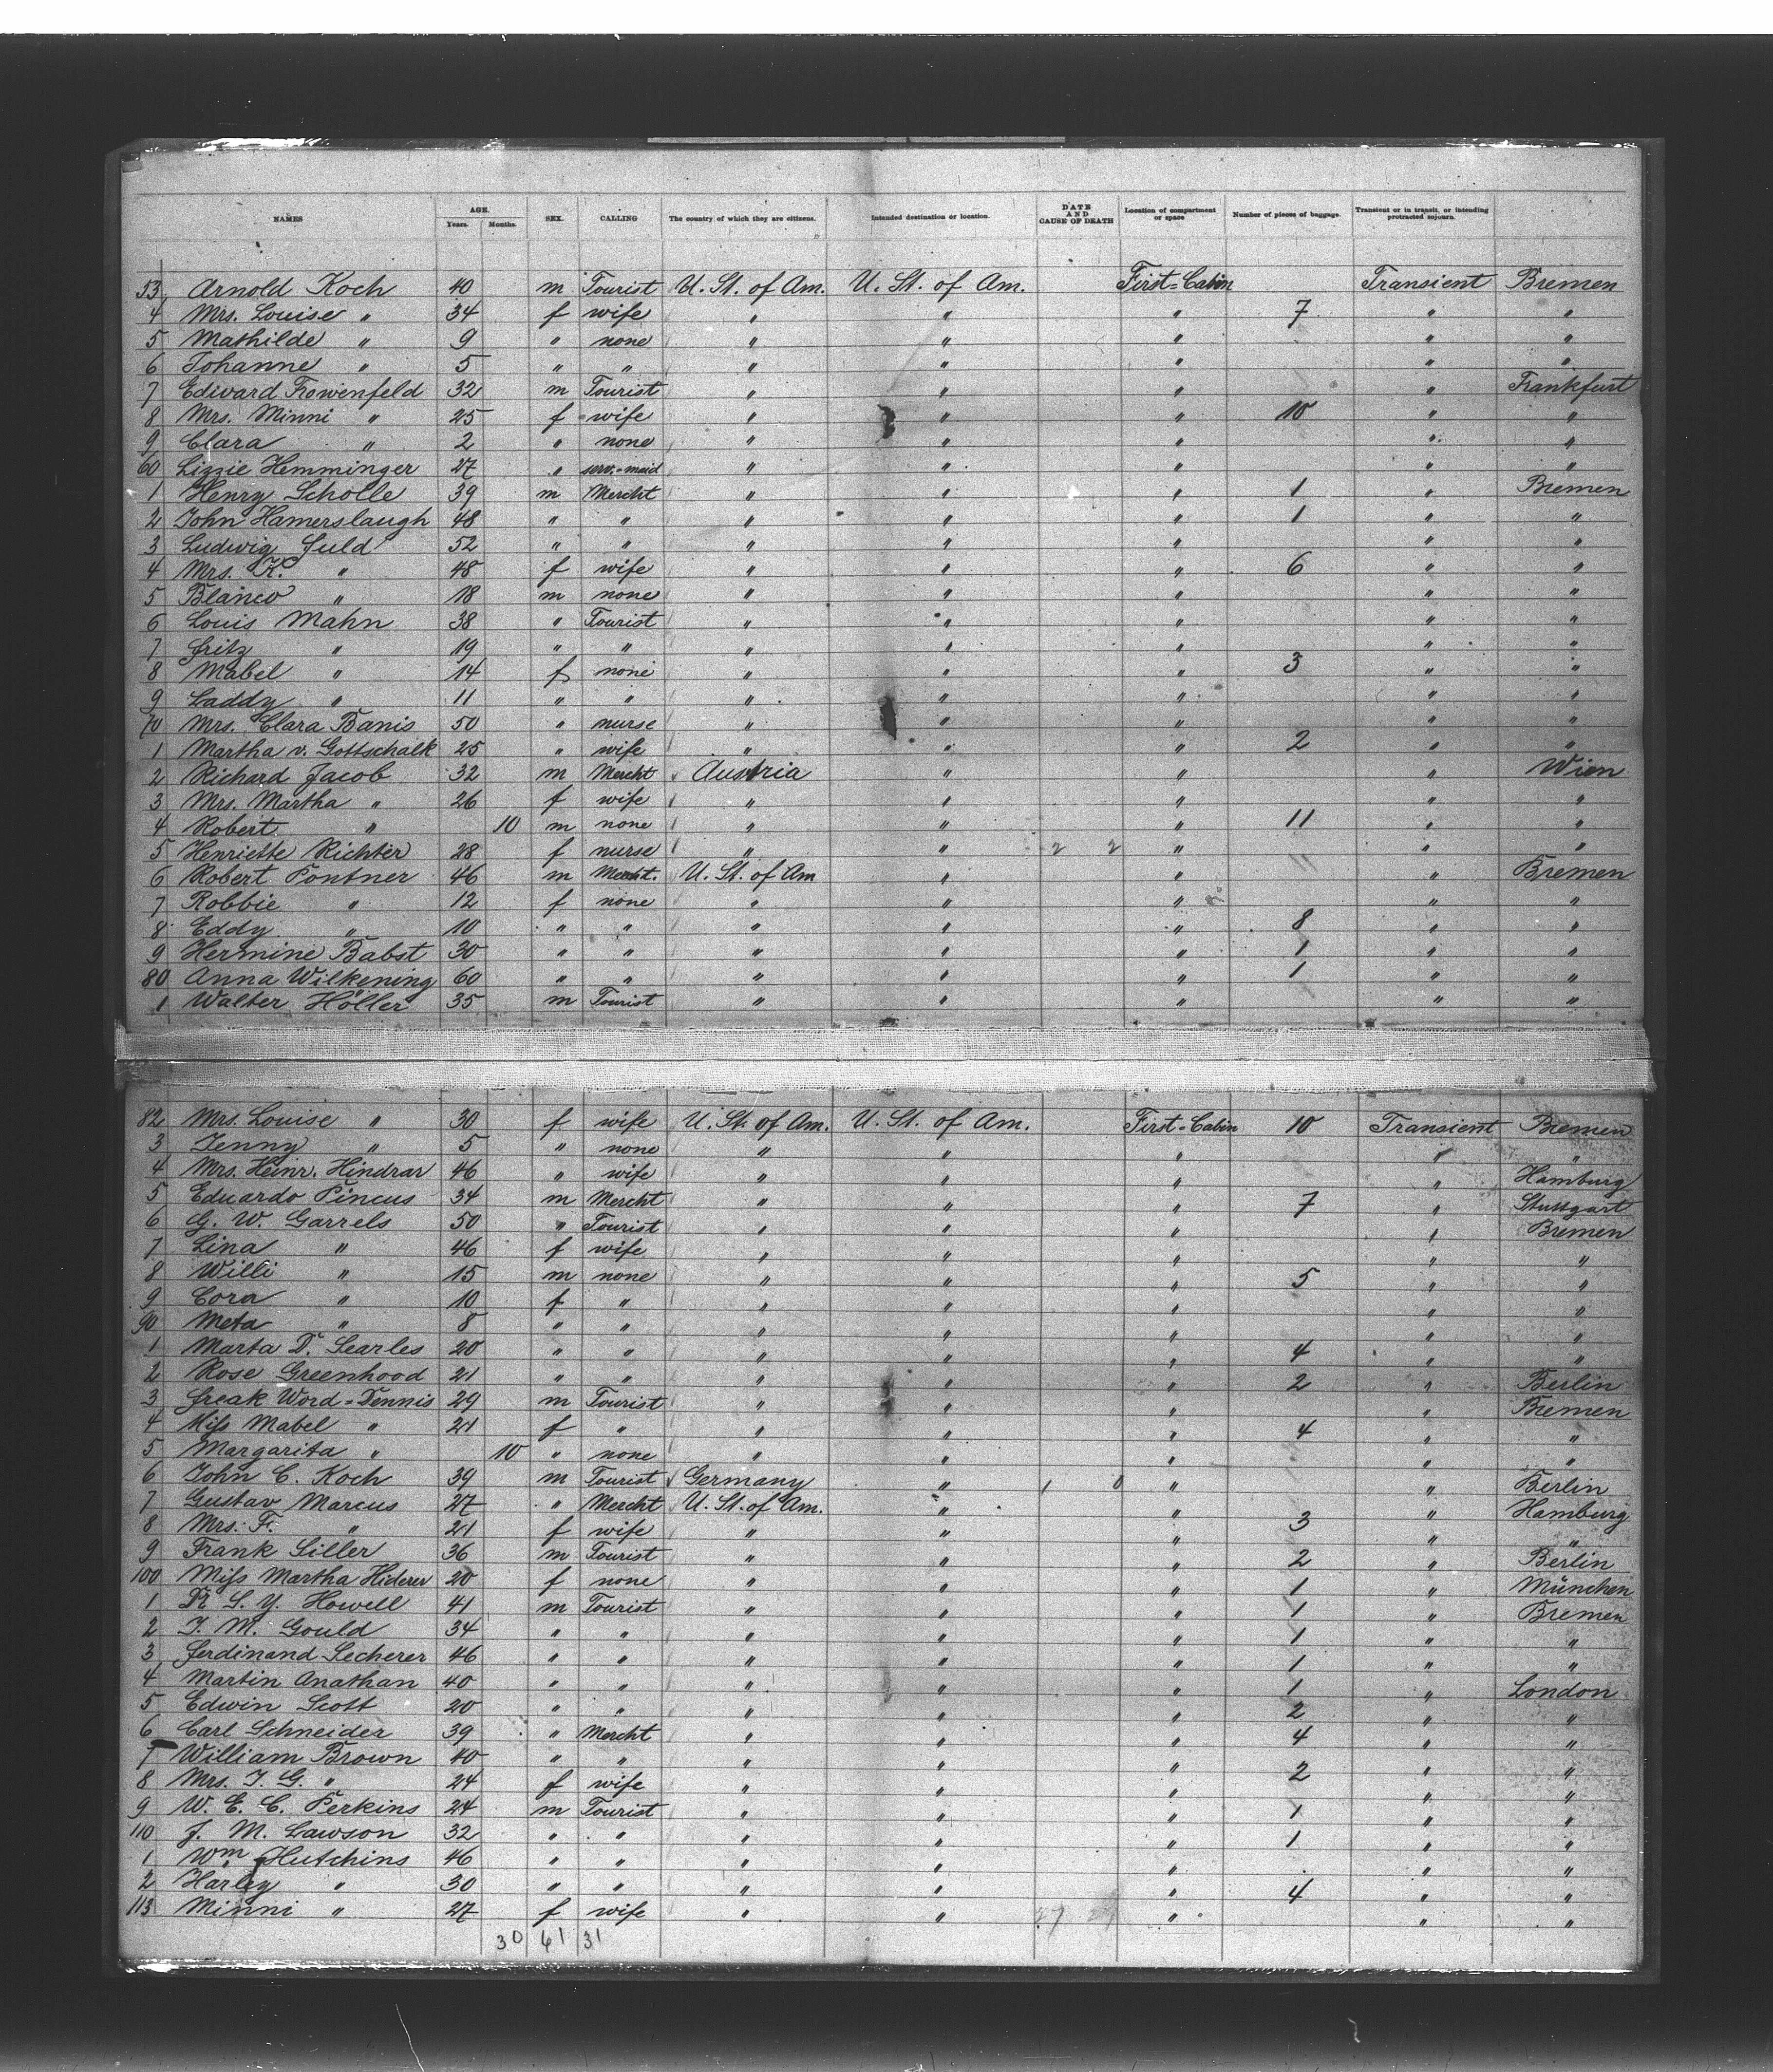 NAMES AGE. Years. Months. SEX. CALLING The country of which they are citizens. Intended destination or location. DATE AND CAUSE OF DEATH Location of compartment or space Number of pieces of baggage. Transient or in transit, or intending protracted sojourn.
53 Arnold Koch 40 m Tourist U. St. of Am. U. St. of Am. First-Cabin Transient Bremen
4 Mrs. Louise " 34 f wife " " " 7 " "
5 Mathilde " 9 " none " " " " "
6 Johanne " 5 " " " " " " "
7 Edward Frowenfeld 32 m Tourist " " " " Frankfurt
8 Mrs. Minni " 25 f wife " " " 10 " "
9 Clara " 2 " none " " " " "
60 Lizzie Hemminger 27 " serv.-maid " " " " "
1 Henry Scholle 39 m Mercht " " " 1 " Bremen
2 John Hamerslaugh 48 " " " " " 1 " "
3 Ludwig Fuld 52 " " " " " " "
4 Mrs. K. " 48 f wife " " " 6 " "
5 Blanco " 18 m none " " " " "
6 Louis Mahn 38 " Tourist " " " " "
7 Fritz " 19 " " " " " " "
8 Mabel " 14 f none " " " 3 " "
9 Laddy " 11 " " " " " " "
70 Mrs. Clara Banis 50 " nurse " " " " "
1 Martha v. Gottschalk 25 " wife " " " 2 " "
2 Richard Jacob 32 m Mercht Austria " " " Wien
3 Mrs. Martha " 26 f wife " " " " "
4 Robert " 10 m none " " " 11 " "
5 Henriette Richter 28 f nurse " " 2 2 " " "
6 Robert Pontner 46 m Mercht. U. St. of Am " " " Bremen
7 Robbie " 12 f none " " " " "
8 Eddy " 10 " " " " " 8 " "
9 Hermine Babst 30 " " " " " 1 " "
80 Anna Wilkening 60 " " " " " 1 " "
1 Walter Höller 35 m Tourist " " " " "
82 Mrs. Louise " 30 f wife U. St. of Am. U. St. of Am. First-Cabin 10 Transient Bremen
3 Jenny " 5 " none " " " " "
4 Mrs. Heinr. Hindrar 46 " wife " " " " Hamburg
5 Eduardo Pincus 34 m Mercht " " " 7 " Stuttgart
6 G. W. Garrels 50 " Tourist " " " " Bremen
7 Lina " 46 f wife " " " " "
8 Willi " 15 m none " " " 5 " "
9 Cora " 10 f " " " " " "
90 Meta " 8 " " " " " " "
1 Marta D. Searles 20 " " " " " 4 " "
2 Rose Greenhood 21 " " " " " 2 " Berlin
3 Freak Word-Dennis 29 m Tourist " " " " Bremen
4 Miss Mabel " 21 f " " " " 4 " "
5 Margarita " 10 " none " " " " "
6 John C. Koch 39 m Tourist Germany " 1 0 " " Berlin
7 Gustav Marcus 27 " Mercht U. St. of Am. " " " Hamburg
8 Mrs. F. " 21 f wife " " " 3 " "
9 Frank Siller 36 m Tourist " " " 2 " Berlin
100 Miss Martha Hiderer 20 f none " " " 1 " München
1 Dr S. Y. Howell 41 m Tourist " " " 1 " Bremen
2 J. M. Gould 34 " " " " " 1 " "
3 Ferdinand Secherer 46 " " " " " 1 " "
4 Martin Anathan 40 " " " " " 1 " London
5 Edwin Scott 20 " " " " " 2 " "
6 Carl Schneider 39 " Mercht " " " 4 " "
7 William Brown 40 " " " " " " "
8 Mrs. J. G. " 24 f wife " " " 2 " "
9 W. E. C. Perkins 24 m Tourist " " " 1 " "
110 J. M. Lawson 32 " " " " " 1 " "
1 Wm. Hutchins 46 " " " " " " "
2 Harley " 30 " " " " " 4 " "
113 Minni " 27 f wife " " 27 27 " " "
30 61 31